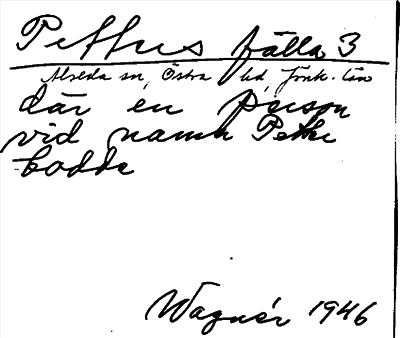 Pethus fälla 3
Alseda sn, Östra hd, Jönk. län
där en person
vid namn Pethe
bodde
Wagnér 1946